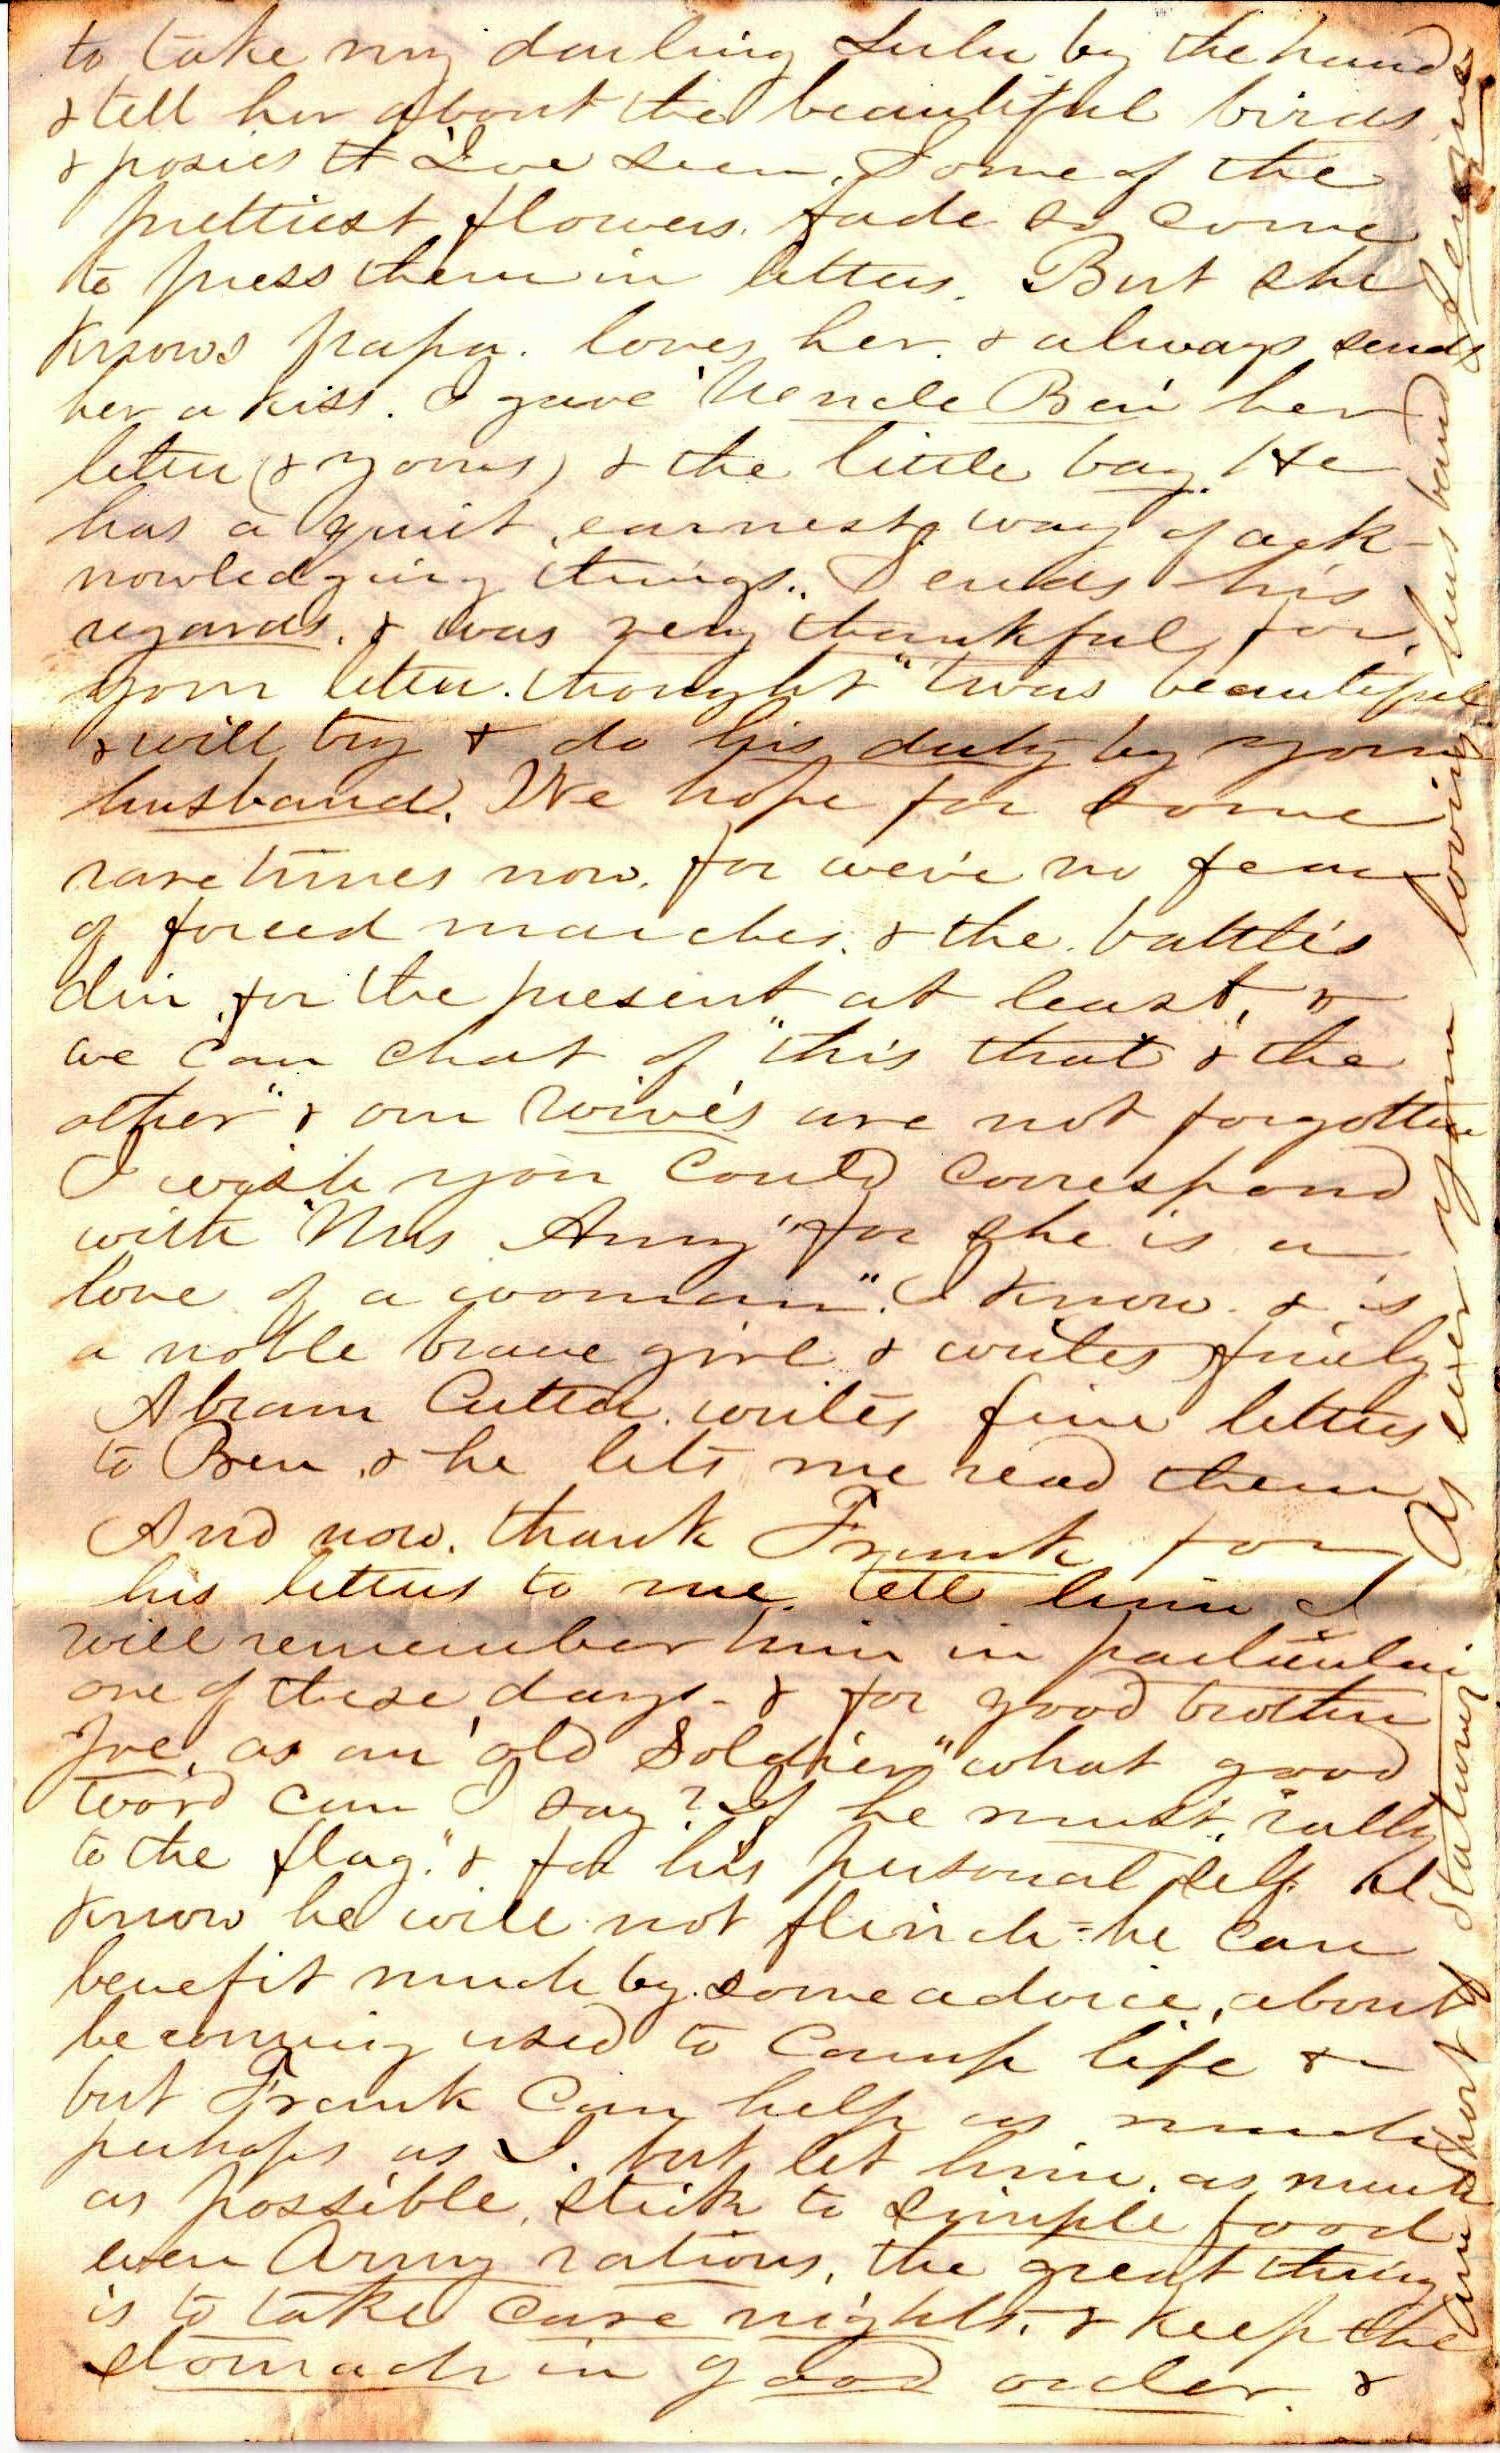 to take my darling Lulu by the hand
& tell her about the beautiful birds
& posies tt I've seen. Some of the
prettiest flowers. fade so some
to press them in letters. But she
knows papa. loves her. & always sends
her a kiss. I gave "Uencle Ben" her
letter (& yours) & the little bag. He
has a quiet, earnest way of ack-
nowledging things.. Sends his
regards. & was very thankful for,
your letter. thought "twas beautiful
& will try & do his duty by your
husband. We hope for some
rare times now. for we've no fear
of forced marches. & the battle's
din, for the present at least, &
we can chat of "this that & the
other" & our wive's are not forgotten
I wish you could correspond
with "Mrs Amy" for she is a
love of a woman". I know. & is
a noble brave girl & writes finely
Abram Cutter. writes fine letters
to Ben, & he lets me read them
And now. thank Frank for
his letters to me. tell him I
will remember him in particular
one of these days - & for good brother
Joe, as an "old Soldier" what good
word can I say? If he must, "rally
to the flag." & for his personal self I
know he will not flinch - he can
benefit much by some advice, about
becoming used to camp life &
but Frank can help as much
perhaps as I. but let him, as much
as possible, stick to simple food
even Army rations, the great thing
is to take care nights, & keep the
stomach in good order. &
am short of stationery
As ever your loving husband